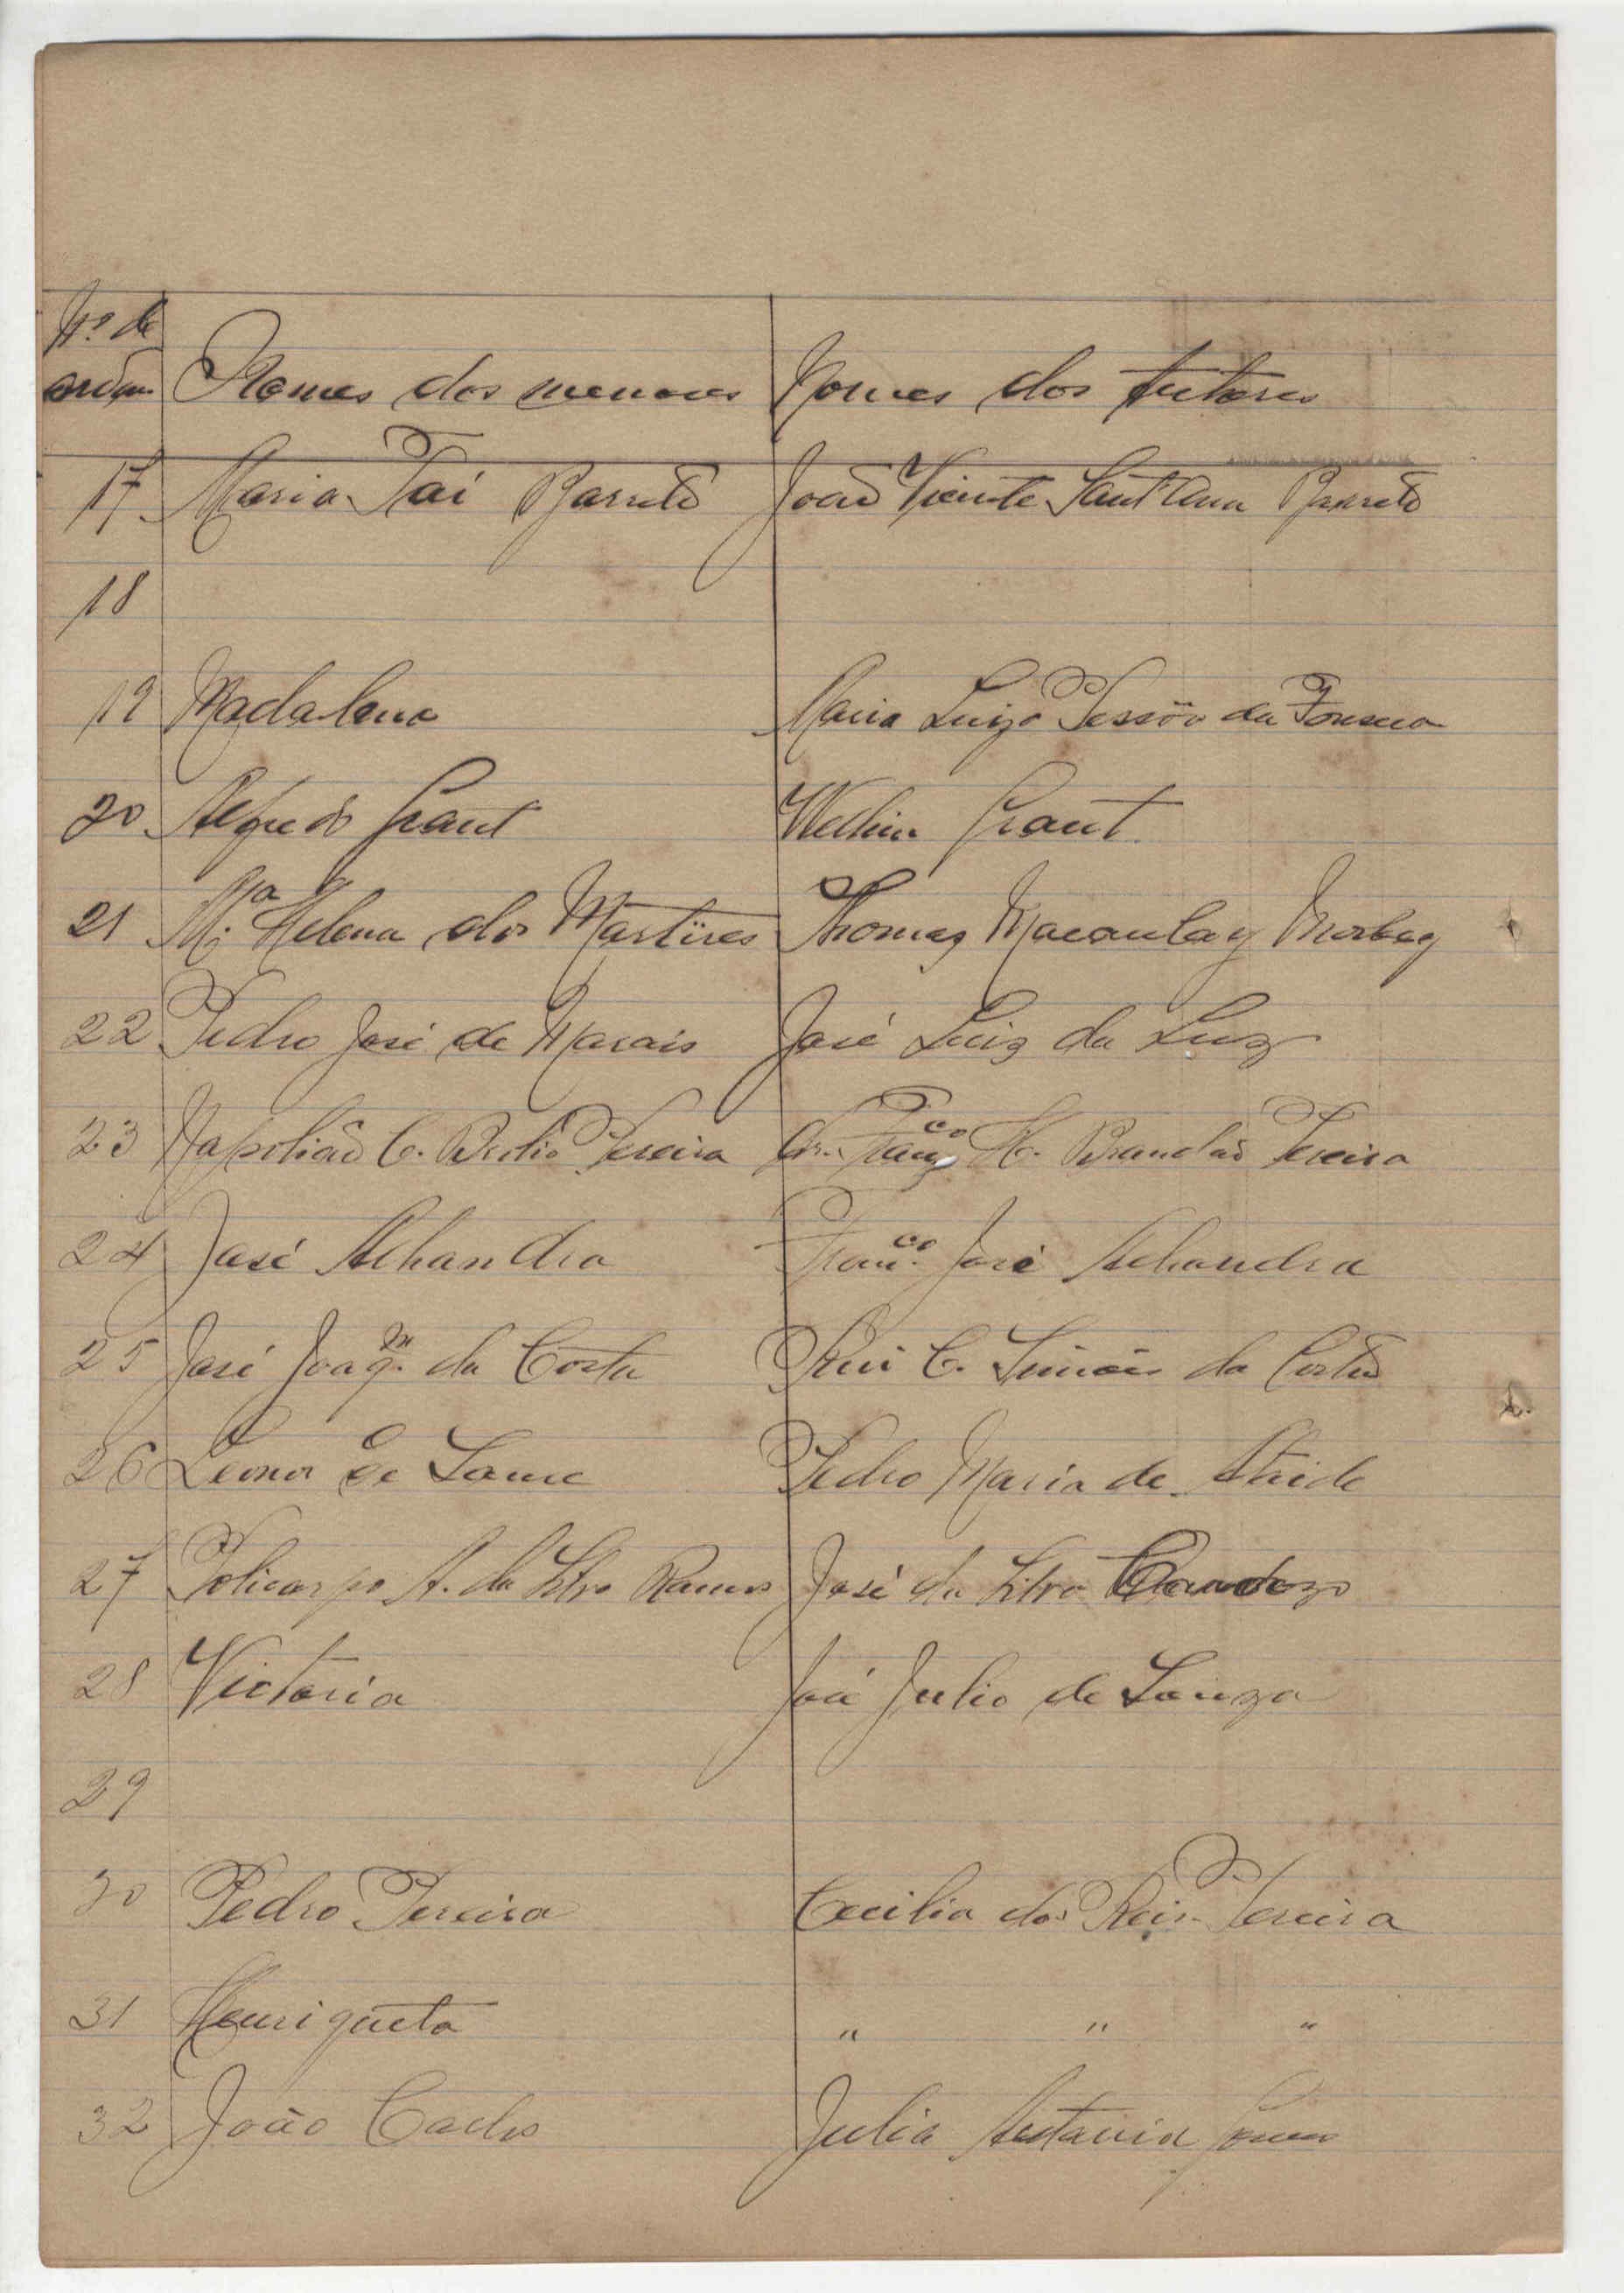 Nº de
ordem Nomes dos menores Nomes dos tutores
17 Maria Tai Barreto João Vicente Sant'Anna Barreto
18
19 Madalena Maria Luiza Pessôa da Fonseca
20 Alfredo Grant Grant
21 M.ª Helena dos Martires Thomaz Macaulay
22 Pedro José de Morais José Luiz da Luz
23 Napolião C. Pereira Dr. Franc.co H. Brandão Pereira
24 José Alhandra Franc.co José Alhandra
25 José Joaq.m da Costa Rui C. Simões da Costa
26 Leonor de Pedro Maria de Ataide
27 Policarpo A. da Silva Ramos José da Silva Cardozo
28 Victoria José Julio de Souza
29
30 Pedro Pereira Cecilia dos Reis Pereira
31 Henriqueta " " "
32 João Carlos Julia Antonia Gomes